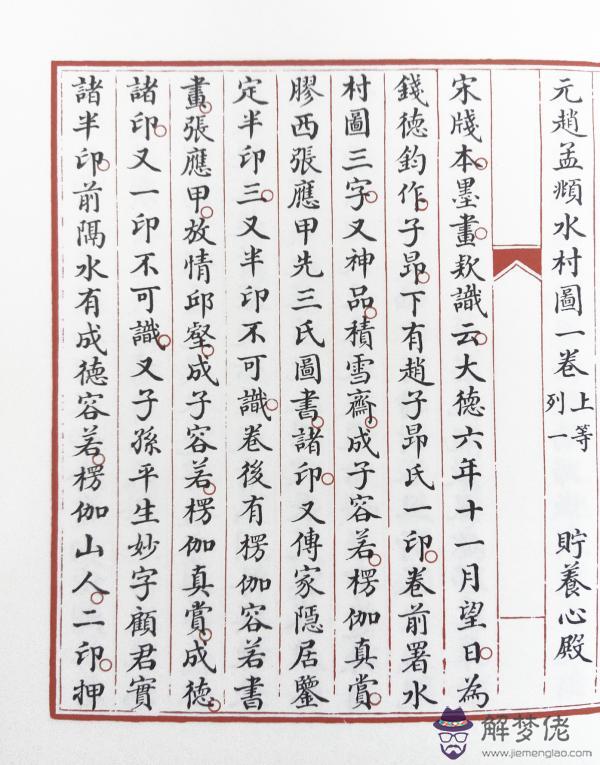 元趙孟頫水村圖一卷 上等 列一 貯養心殿
宋牋本。墨畫。款識云。大德六年十一月望日。為
錢德鈞作。子昂。下有趙子昂氏一印。卷前署水
村圖三字。又神品。積雪齋。成子容若。楞伽真賞。
膠西張應甲先三氏圖書。諸印。又傳家隱居鑒
定半印三。又半印不可識。卷後有楞伽容若書
畫。張應甲。放情邱壑。成子容若。楞伽真賞。成德。
諸印。又一印不可識。又子孫平生妙字顧君實
諸半印。前隔水有成德容若。楞伽山人。二印。押
解梦佬
www.jiemenglao.com